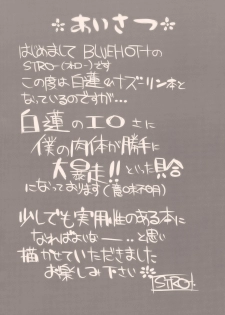 ＊あいさつ＊
はじめまして BLUEHOTの
STRO-(ストロー)です
この度は白蓮&ナズーリン本と
なっているのですが…
白蓮のエロさに
僕の肉体が勝手に
大暴走!!といった具合
になっております(意味不明)
少しでも実用性のある本に
なればよいなー…と思い
描かせていただきました
お楽しみ下さい＊
STRO-